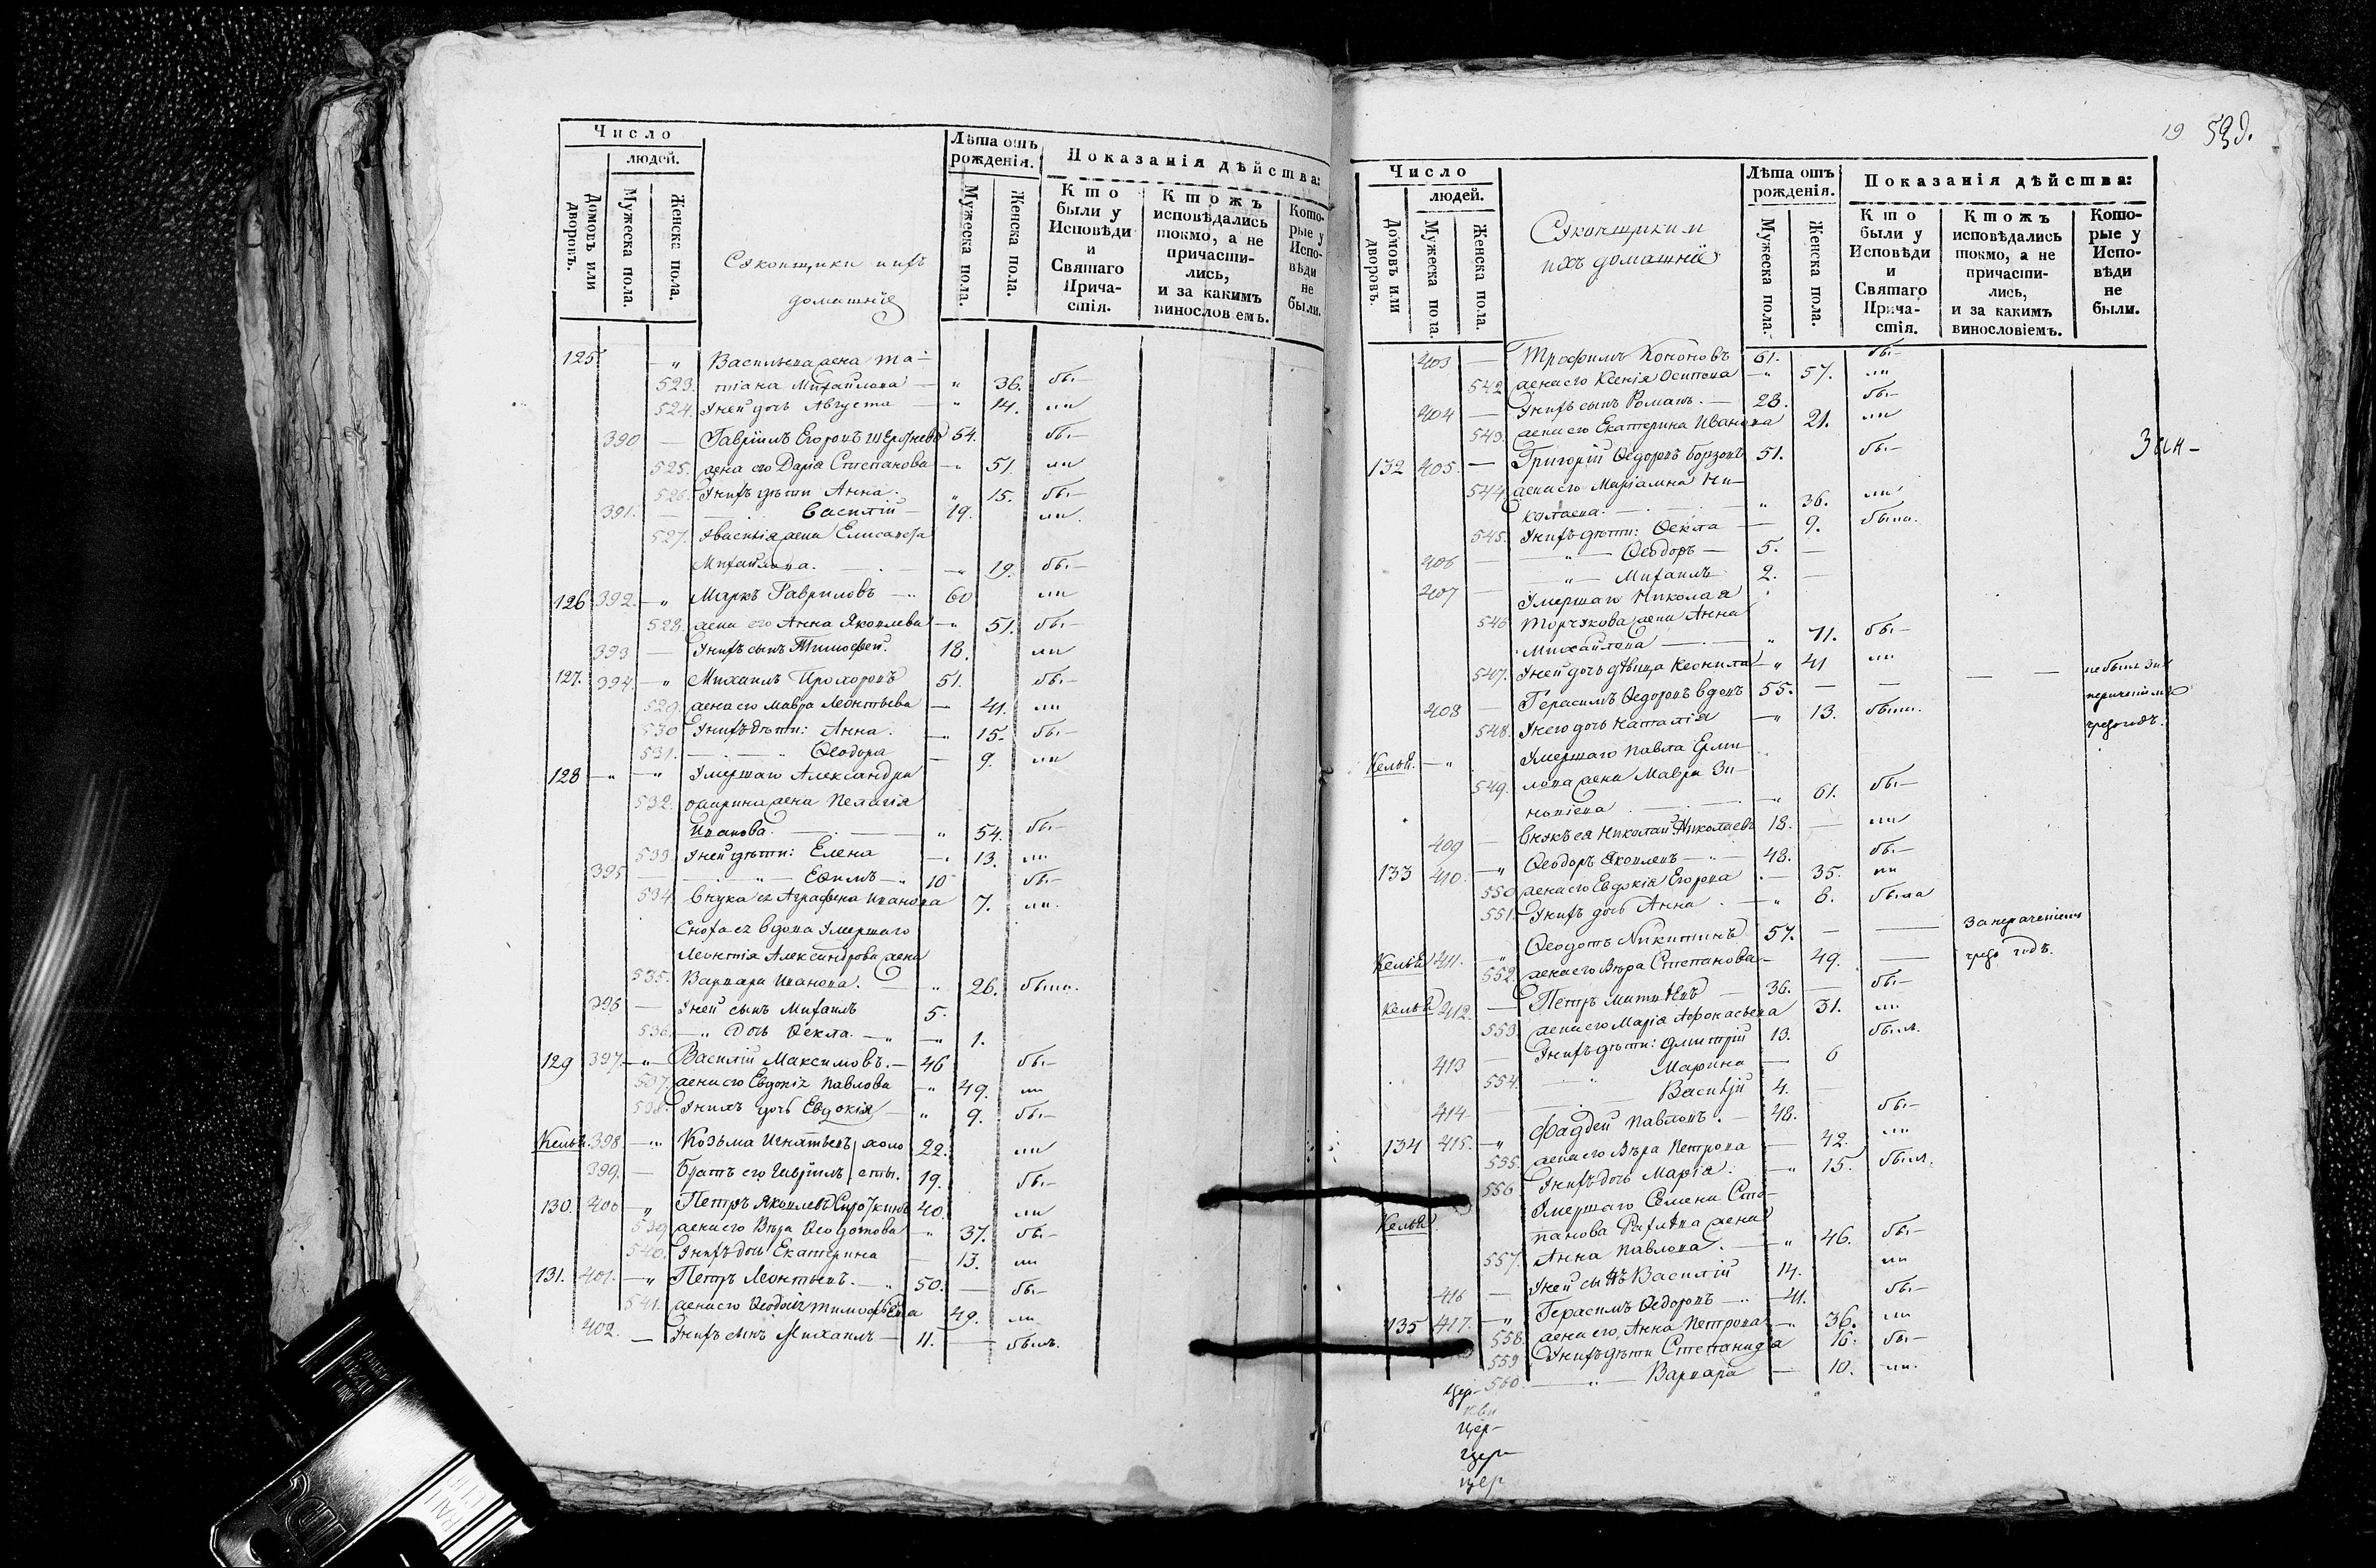 Число
людей.
Домовъ или дворовъ.
Мужеска пола.
Женска пола.
Суконщики и ихъ
домашніе
Лѣта отъ
рожденія.
Мужеска пола.
Женска пола.
Показанія дѣйства:
Кто были у Исповѣди и Святаго Причастія.
Ктожъ исповѣдались токмо, а не причастились, и за какимъ винословіемъ.
Которые у Исповѣди не были.
125. — „ Васильева жена Та-
523. тіана Михайлова — „ 36. бы—
524. У ней дочь Августа — „ 14. ли
390 — Гавріилъ Егоровъ 54. бы—
525. жена его Дарія Степанова — „ 51. ли
526. У нихъ дѣти Анна. „ 15. бы—
391. — Василій — 19. ли.
527. У Василія жена Елисавета
Михайлова. — „ 19. бы—
126 392. — „ Маркъ Гавриловъ — 60 ли
528. жена его Анна Яковлева — „ 51. бы—
393 — У нихъ сынъ Тимофей. 18. ли
127. 394. — „ Михаилъ Прохоровъ 51. бы—
529. жена его Мавра Леонтьева — 41. ли
530 У нихъ дѣти: Анна. — „ 15. бы—
531. — „ Ѳеодора — 9. ли
128 — „ — „ Умершаго Александра
532. жена Пелагія
Иванова. — „ 54. бы—
533. У ней дѣти: Елена — 13. ли
395 — „ — Ефимъ — „ 10 бы—
534. Внука ея Аграфена Иванова 7. ли.
Сноха ея вдова Умершаго
Леонтія Александрова жена
535. Варвара Иванова. „ 26. была.
396 — У ней сынъ Михаилъ 5.
536. — „ Дочь Ѳекла. — „ — „ 1.
129 397. — „ Василій Максимовъ. — 46 бы—
537. жена его Евдокія Павлова „ 49. ли
538. У нихъ дочь Евдокія — „ 9. бы—
Кельи. 398 — „ Козьма Игнатьевъ холо 22. ли
399. — Братъ его Гавріилъ сты. 19. бы—
130. 400 „ Петръ Яковлевъ 40. ли
539 жена его Вѣра Ѳеодотова „ 37. бы—
540. У нихъ дочь Екатерина — 13. ли
131. 401. — „ Петръ Леонтьевъ. — „ 50. — бы—
541. жена его Ѳеодосія Тимофѣева 49. ли
402. — У нихъ сынъ Михаилъ — 11. — былъ.
19 59д.
Число
людей.
Домовъ или дворовъ.
Мужеска пола.
Женска пола.
Суконщики и
ихъ домашніе
Лѣта отъ
рожденія.
Мужеска пола.
Женска пола.
Показанія дѣйства:
Кто были у Исповѣди и Святаго Причастія.
Ктожъ исповѣдались токмо, а не причастились, и за какимъ винословіемъ.
Которые у Исповѣди не были.
403 — Трофимъ Кононовъ 61. бы—
542 жена его Ксенія Осипова — „ 57. ли
404 — У нихъ сынъ Романъ. — 28. бы—
543. жена его Екатерина Иванова 21. ли
132 405. — Григорій Ѳедоровъ Борзовъ 51. бы—
544 жена его Маріамна Ни-
колаева. — „ 36. ли
545. У нихъ дѣти: Ѳекла — 9. была.
406 — „ — Ѳеодоръ — 5. —
407 — „ — Михаилъ 2. —
Умершаго Николая
546 жена Анна
Михайлова — „ 71. бы—
547. У ней дочь дѣвица Неонила — „ 41 ли
408 — Герасимъ Ѳедоровъ вдовъ 55. — — — — не былъ за нераченіемъ
548. У него дочь Наталія — „ 13. была. чрезъ годъ.
Кельи. — „ Умершаго Павла Ерми-
549. лова жена Мавра Зи-
новіева — „ 61. бы—
409 — Внукъ ея Николай Николаевъ 18. — ли
133 410. — „ Ѳеодоръ Яковлевъ — „ 48. бы—
550 жена его Евдокія Егорова — 35. ли
551. У нихъ дочь Анна. — „ 8. была
Кельи 411. „ Ѳеодотъ Никитинъ 57. — — За нераченіемъ
552 жена его Вѣра Степанова — 49. — чрезъ годъ.
Кельи 412. — Петръ 36. — бы—
553 жена его Марія Афонасьева 31. ли
413 — У нихъ дѣти: Дмитрій 13. былъ.
554. „ Марина — 6
414. — Василій 4. —
134 415. — „ Фаддей Павловъ. — 48. бы—
555. жена его Вѣра Петрова — 42. ли
556 У нихъ дочь Марія. — „ 15. была.
Кельи. Умершаго Семена Сте-
панова жена
557. Анна Павлова. — „ 46. бы—
416 — У ней сынъ Василій 14. ли
135 417. — „ Герасимъ Ѳедоровъ — „ 41. бы—
558. жена его Анна Петрова — „ 36. ли
559 У нихъ дѣти Степанида 16. бы—
560. — „ — Варвара — 10. ли.
Цер-
кви
цер-
цер-
цер